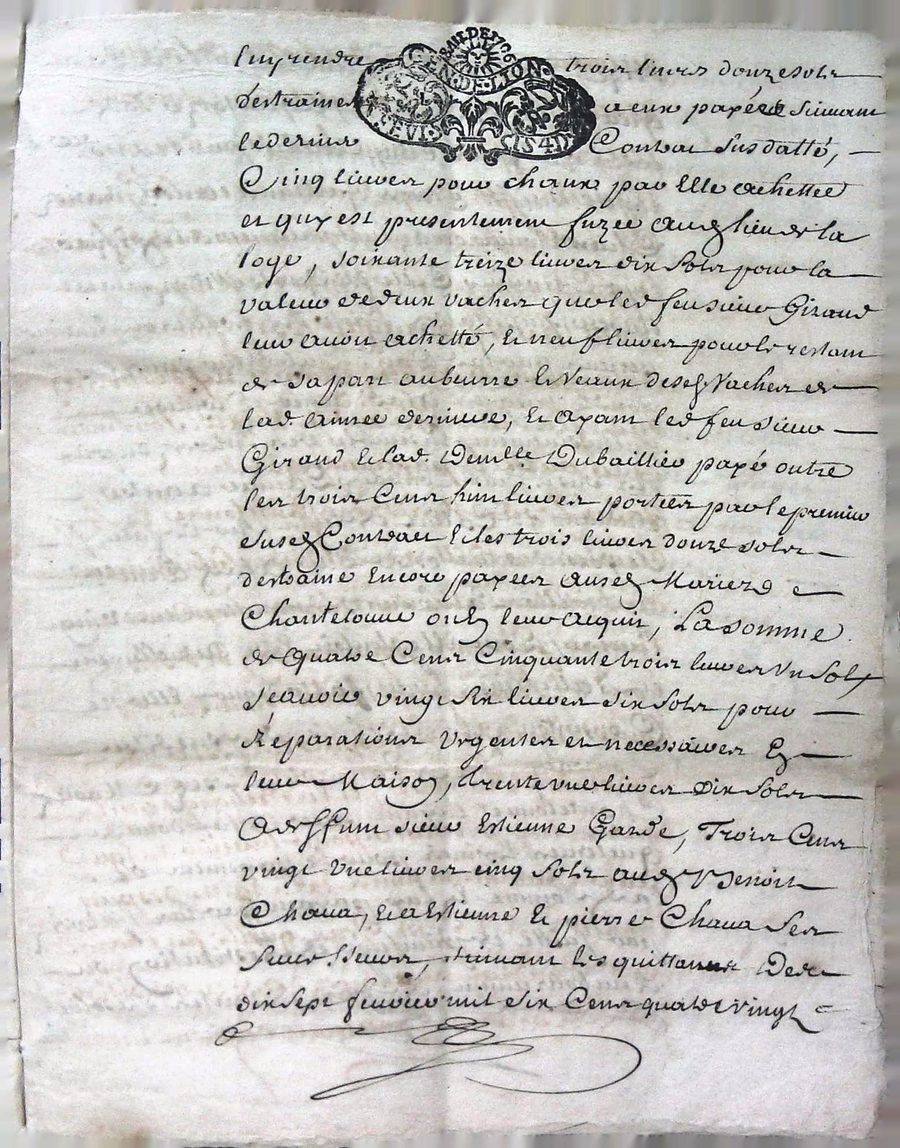 BAIL DE 1706
GEN. DE LION.
trois livres douze sols
destraines a eux payée suivant
le dernier Contrat susdatté,
Cinq livres pour chaux par Elle achettée
et quy est presentement fuzée audg lieu de la
loge, soixante treize livres dix sols pour la
valeur de deux vaches que led feu sieur Giraud
leur avoit achetté, Et neuf livres pour le restant
de sa part au beurre Et Veaux desd vaches de
lad. année derniere, Et ayant led feu sieur
Giraud Et lad. Demlle Dubaillier payé outre
les trois Cens huit livres portées par le premier
susd Contract Et les trois livres douze sols
destraine Encore payées ausd Mariez de
Chantelouve leur acquit, La somme
de quatre Cens Cinquante trois livres Un sols
scavoir vingt six livres dix sols pour
Reparations Urgentes et necessaires En
leur Maison, trente une livres dix sols
A deffunt sieur Estienne Garde, Trois Cens
vingt une livres cinq sols aud Benoit
Chava, Et a Estienne Et pierre Chava Ses
suivant les quittances Des
dix sept fevrier mil six Cens quatre vingt